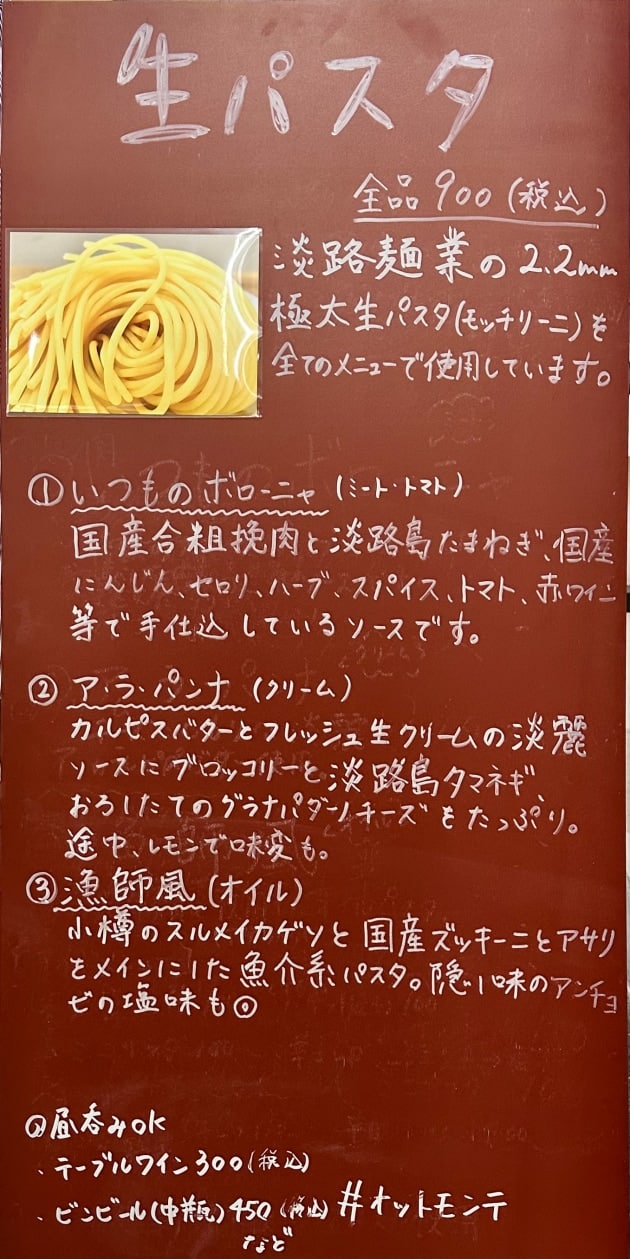 生パスタ
全品900(税込)
淡路麺業の2.2mm
極太生パスタ(モッチリーニ)を
全てのメニューで使用しています。
①いつものボローニャ(ミート・トマト)
国産合粗挽肉と淡路島たまねぎ、国産
にんじん、セロリ、ハーブ、スパイス、トマト、赤ワイン
等で手仕込しているソースです。
②ア・ラ・パンナ(クリーム)
カルピスバターとフレッシュ生クリームの淡麗
ソースにブロッコリーと淡路島タマネギ、
おろしたてのグラナパダーノチーズをたっぷり。
途中、レモンで味変も。
③漁師風(オイル)
小樽のスルメイカゲソと国産ズッキーニとアサリ
をメインにした魚介系パスタ。隠し味のアンチョ
ビの塩味も◎
◎昼呑みOK
、テーブルワイン300(税込)
、ビンビール(中瓶)450(税込)#オットモンテ
など